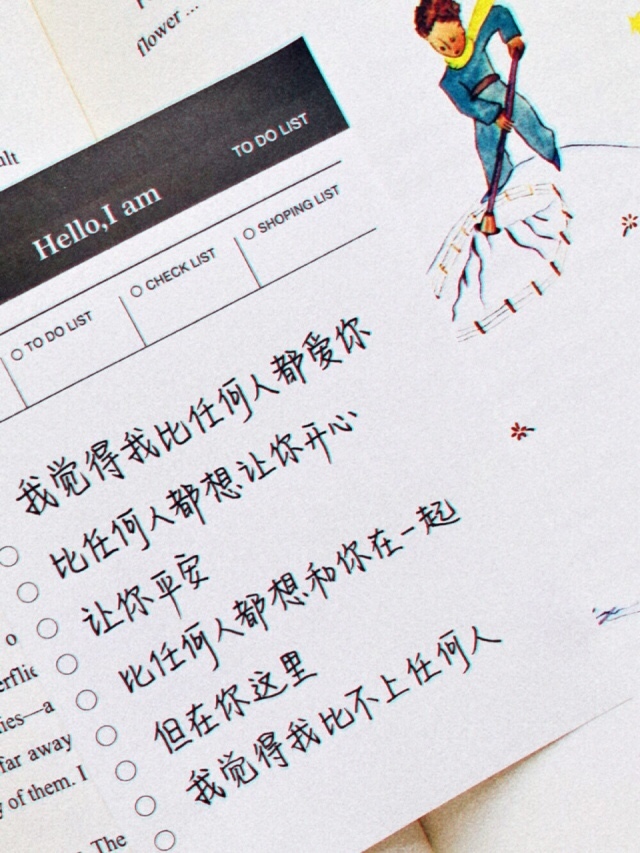 flower ...
TO DO LIST
Hello,I am
SHOPING LIST
CHECK LIST
TO DO LIST
我觉得我比任何人都爱你
比任何人都想让你开心
让你平安
比任何人都想和你在一起
但在你这里
我觉得我比不上任何人
o
ies—a
far away
of them. I
The